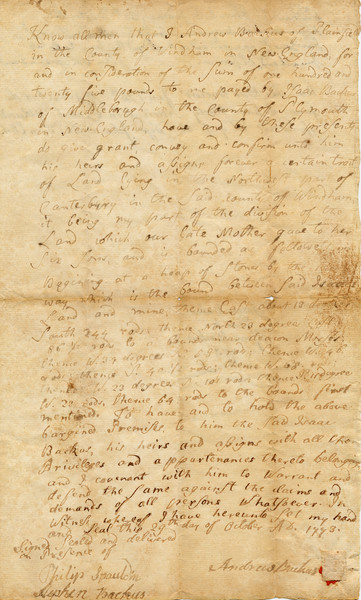 Know all men that I Andrew Backus of Plainfield
in the County of Windham in New England, for
and in consideration of the Sum of one hundred and
twenty five pounds to me payed by Isaac Backus
of Middlebrough in the County of Plymouth
in New England, have and by these presents
do give grant, convey and confirm unto him
his heirs and assigns forever a certain tract
of Land lying in the Northeast part of
Canterbury in the Said County of Windham
it being my part of the division of the
Land which our late Mother gave to her
Six Sons, and is bounded as followeth
Begining at a heap of Stones by the
way which is the bound between Said Isaac's
Land and mine, thence East about 18
South 244 rods, thence North 23 degrees
86 ½ rods to a bound near deacon
thence W. 39 degrees rods; thence W.
rods; thence N. 40 ½ rods; thence W.
W. 23 degrees rods thence
W. 23 rods, thence 64 rods to the bounds first
mentioned. To have and to hold the above
bargined Premises, to him the Said Isaac
Backus, his heirs and assigns with all the
Privileges and appurtenances thereto belonging
and I covenant with him to Warrant and
defend the Same against the claims and
demands of all persons Whatsoever. In
Witness whereof I have hereunto Set my hand
and Seal this 29th day of October A.D. 1773.
Signed Sealed and delivered
in Presence of
Andrew Backus
Philip Spaulding
Stephen Backus